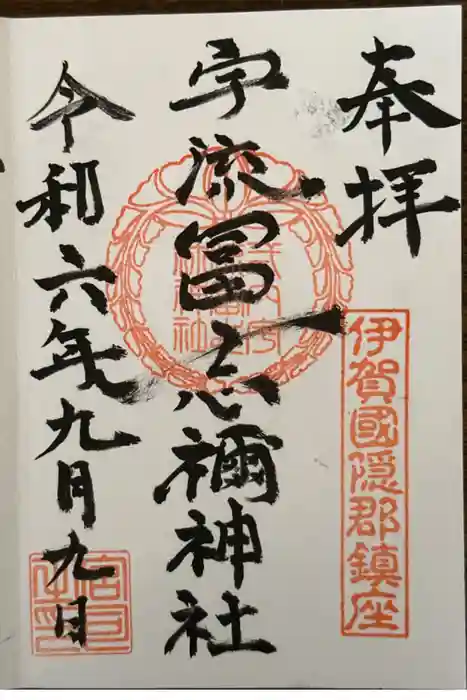 奉拝
伊賀國隠郡鎮座
宇流冨志禰神社
令和六年九月九日